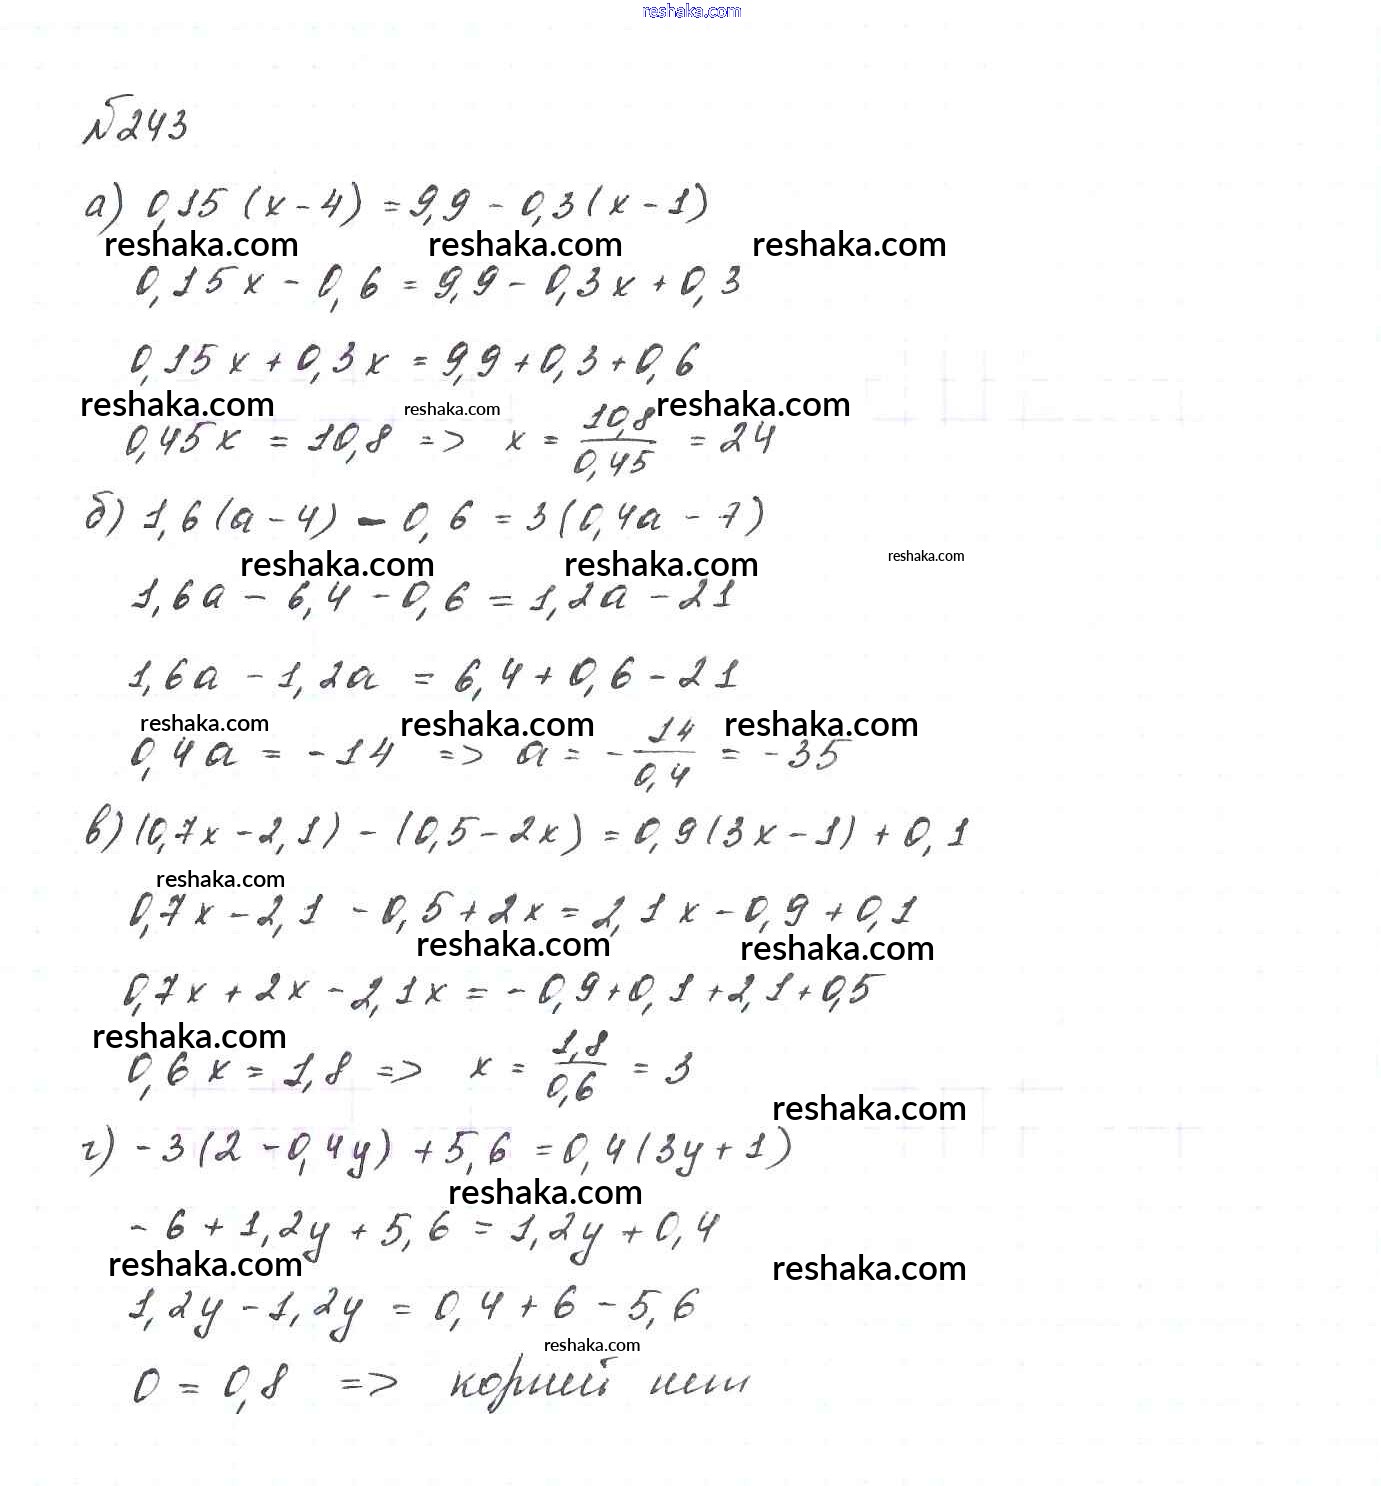 reshaka.com
№243
а) 0,15 (x - 4) = 9,9 - 0,3(x - 1)
reshaka.com reshaka.com reshaka.com
0,15x - 0,6 = 9,9 - 0,3x + 0,3
0,15x + 0,3x = 9,9 + 0,3 + 0,6
reshaka.com reshaka.com reshaka.com
0,45x = 10,8 => x = 10,8/0,45 = 24
б) 1,6(a - 4) - 0,6 = 3(0,4a - 7)
reshaka.com reshaka.com reshaka.com
1,6a - 6,4 - 0,6 = 1,2a - 21
1,6a - 1,2a = 6,4 + 0,6 - 21
reshaka.com reshaka.com reshaka.com
0,4a = -14 => a = -14/0,4 = -35
в) (0,7x - 2,1) - (0,5 - 2x) = 0,9(3x - 1) + 0,1
reshaka.com
0,7x - 2,1 - 0,5 + 2x = 2,1x - 0,9 + 0,1
reshaka.com reshaka.com
0,7x + 2x - 2,1x = -0,9 + 0,1 + 2,1 + 0,5
reshaka.com
0,6x = 1,8 => x = 1,8/0,6 = 3
reshaka.com
г) -3(2 - 0,4y) + 5,6 = 0,4(3y + 1)
reshaka.com
-6 + 1,2y + 5,6 = 1,2y + 0,4
reshaka.com reshaka.com
1,2y - 1,2y = 0,4 + 6 - 5,6
reshaka.com
0 = 0,8 => корней нет